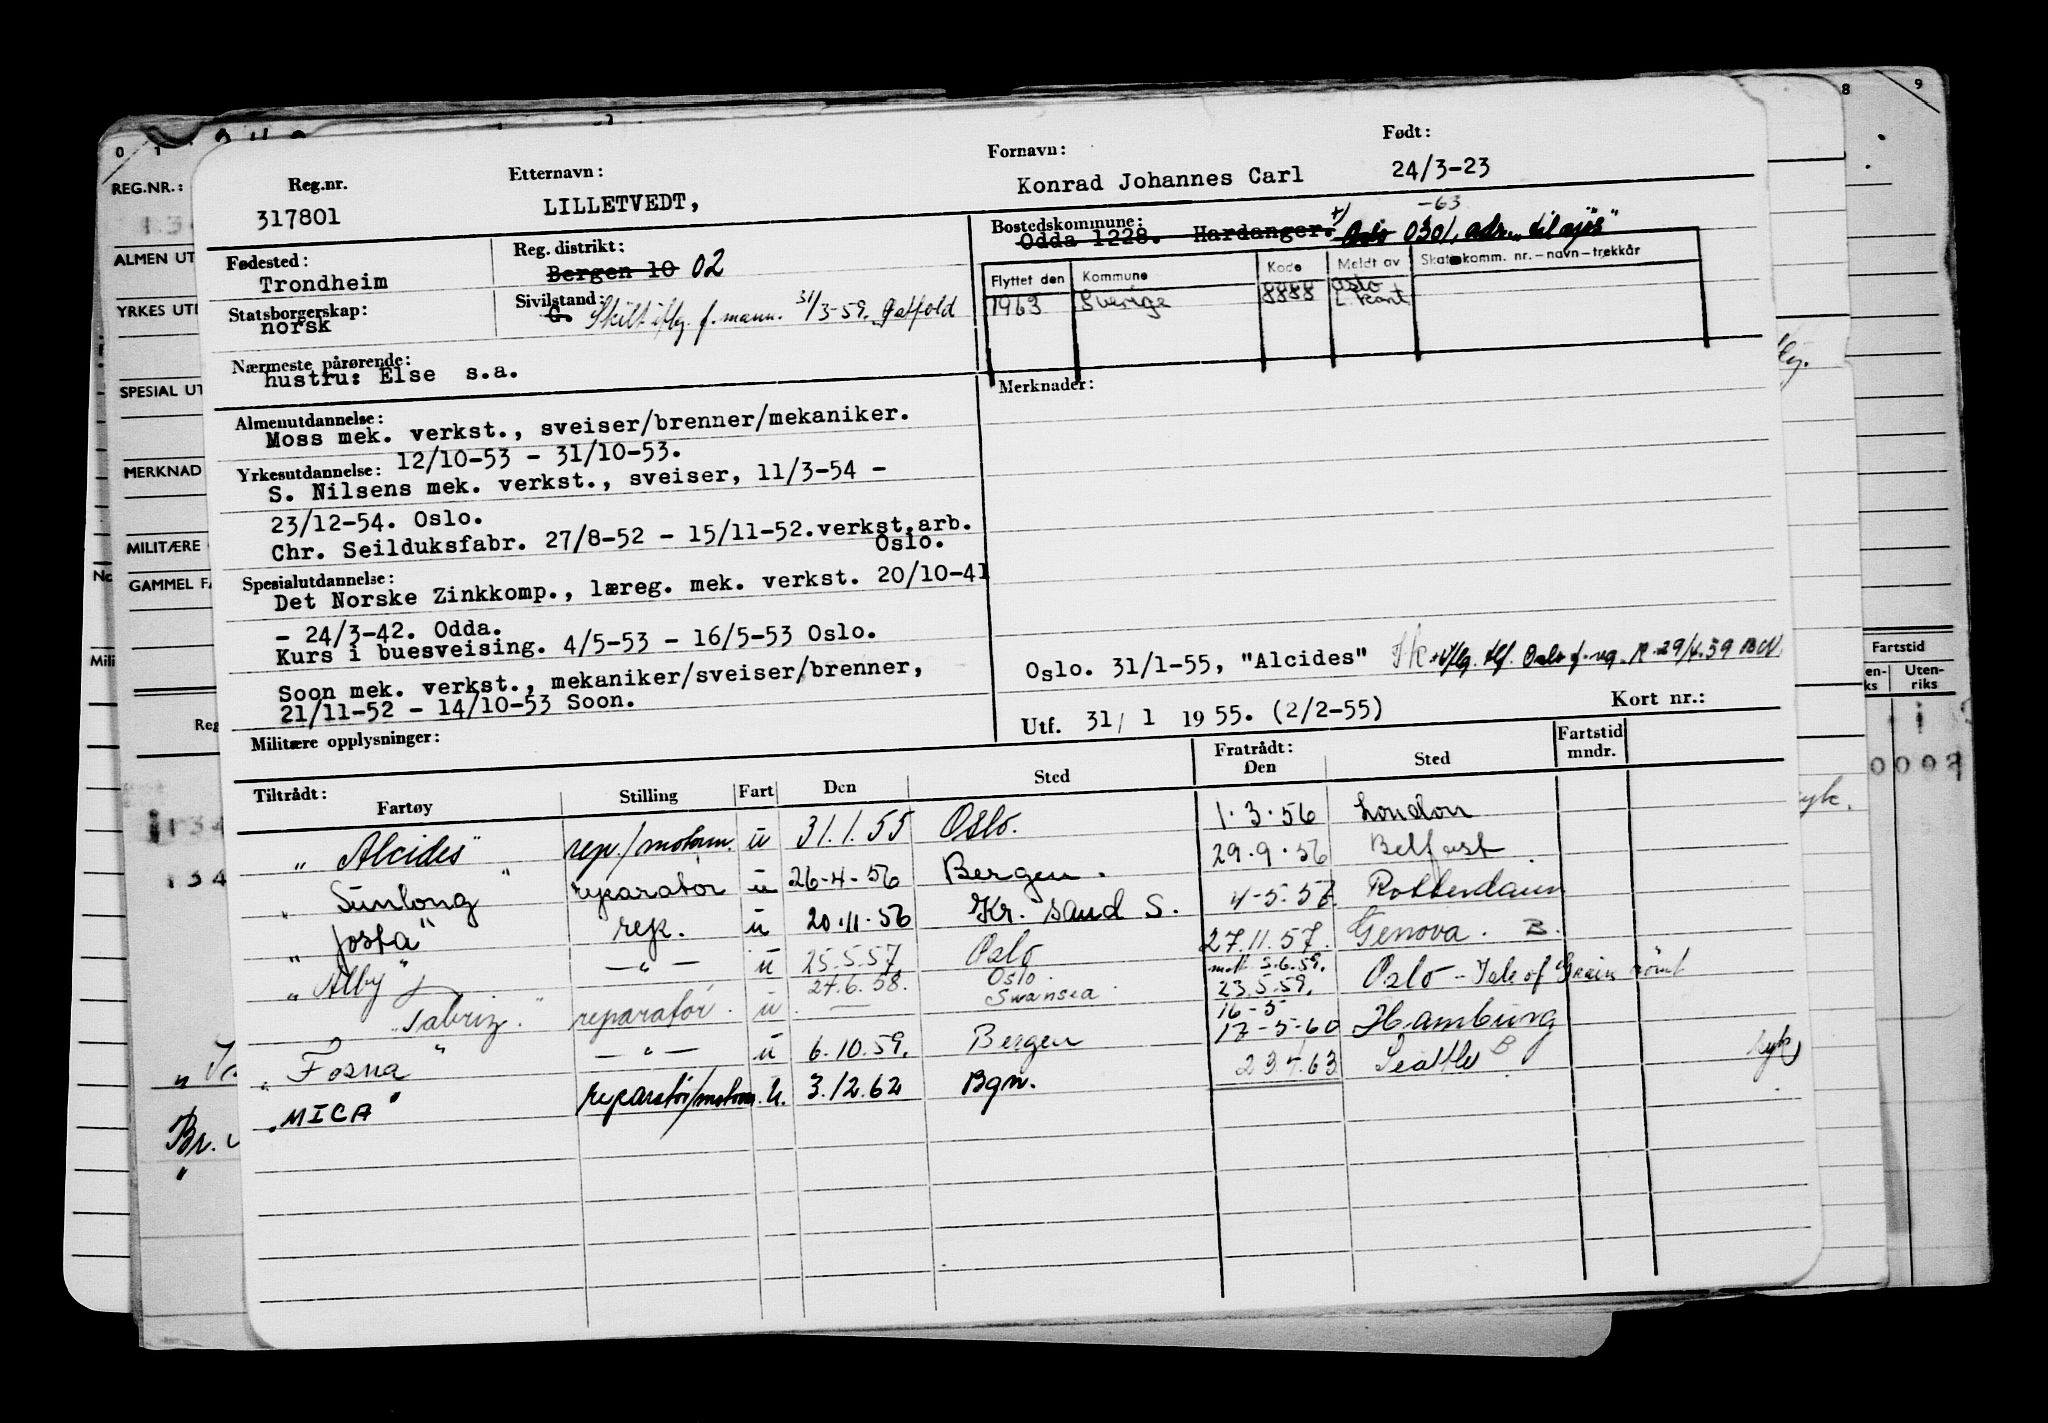 Reg.nr. Etternavn: Fornavn: Født:
317801 LILLETVEDT, Konrad Johannes Carl 24/3-23
Fødested: Trondheim
Reg. distrikt: Bergen 10 02
Bostedskommune: Odda 1228. Hardanger. +) Oslo 0301, adr. "til sjøs" -63
Statsborgerskap: norsk
Sivilstand: G. Skilt iflg. f. mann. 31/3-59.
Flyttet den Kommune Kode Meldt av Skattekomm. nr.-navn-trekkår
1963 Sverige 8888 Oslo L kont
Nærmeste pårørende: hustru: Else s.a.
Merknader:
Almenutdannelse:
Moss mek. verkst., sveiser/brenner/mekaniker.
12/10-53 - 31/10-53.
Yrkesutdannelse:
S. Nilsens mek. verkst., sveiser, 11/3-54 -
23/12-54. Oslo.
Chr. Seilduksfabr. 27/8-52 - 15/11-52. verkst.arb.
Oslo.
Spesialutdannelse:
Det Norske Zinkkomp., læreg. mek. verkst. 20/10-41
- 24/3-42. Odda.
Kurs i buesveising. 4/5-53 - 16/5-53 Oslo.
Soon mek. verkst., mekaniker/sveiser/brenner,
21/11-52 - 14/10-53 Soon.
Oslo. 31/1-55, "Alcides"
Utf. 31/ 1 1955. (2/2-55) Kort nr.:
Militære opplysninger:
Tiltrådt: Fratrådt:
Fartøy Stilling Fart Den Sted Den Sted Fartstid mndr.
"Alcides" rep./motorm. u 31.1.55 Oslo. 1.3.56 London
"Sunlong" reparatør u 26-4-56 Bergen. 29.9.56 Belfast
"Josta" rep. u 20.11.56 Kr. sand S. 4-5-57 Rotterdam
"Alby" -"- u 25.5.57 Oslo 27.11.57. Genova. B.
"Tabriz" reparatør. u 27.6.58. Oslo. Swansea 23.5.59. Oslo - Isle of Grain rømt
"Fosna" -"- u 6.10.59. Bergen 16-5 17-5-60 Hamburg
"MICA" reparatør/motorm. u. 3.12.62 Bgn. 23.1.63 Seattle B syk
0 1 8 9
REG.NR.:
ALMEN UT
YRKES UTD
SPESIAL UT
MERKNAD
MILITÆRE
GAMMEL FA
Mili
Reg
134
Br.
Fartstid
Uten-
riks